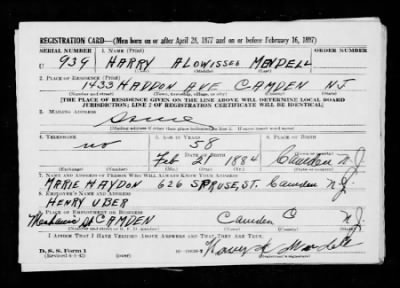 REGISTRATION CARD—(Men born on or after April 28, 1877 and on or before February 16, 1897)
SERIAL NUMBER 1. NAME (Print) ORDER NUMBER
U 939 HARRY ALOWISSES MENDELL
(First) (Middle) (Last)
2. PLACE OF RESIDENCE (Print)
1433 HADDON AVE CAMDEN NJ
(Number and street) (Town, township, village, or city) (County) (State)
[THE PLACE OF RESIDENCE GIVEN ON THE LINE ABOVE WILL DETERMINE LOCAL BOARD
JURISDICTION; LINE 2 OF REGISTRATION CERTIFICATE WILL BE IDENTICAL]
3. MAILING ADDRESS
Same
[Mailing address if other than place indicated on line 2. If same insert word same]
4. TELEPHONE 5. AGE IN YEARS 6. PLACE OF BIRTH
no 58 Camden
DATE OF BIRTH (Town or county)
Feb 21 1884 N.J.
(Exchange) (Number) (Mo.) (Day) (Yr.) (State or country)
7. NAME AND ADDRESS OF PERSON WHO WILL ALWAYS KNOW YOUR ADDRESS
MARIE HAYDON 626 SPRUSE, ST. Camden N.J.
8. EMPLOYER'S NAME AND ADDRESS
HENRY UBER
9. PLACE OF EMPLOYMENT OR BUSINESS
CAMDEN Camden C NJ
(Number and street or R. F. D. number) (Town) (County) (State)
I AFFIRM THAT I HAVE VERIFIED ABOVE ANSWERS AND THAT THEY ARE TRUE.
D. S. S. Form 1
(Revised 4-1-42) Harry A Mendell
(Registrant's signature)